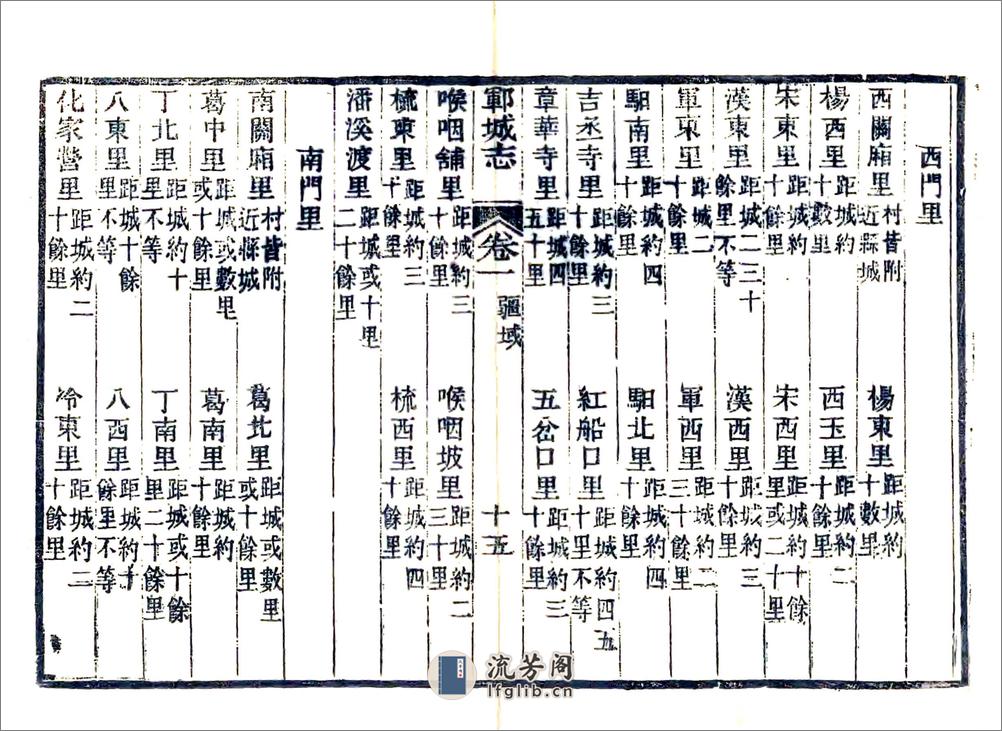 西門里
西關廂里 村皆附近縣城 楊東里 距城約十數里
楊西里 距城約十數里 西玉里 距城約二十餘里
宋東里 距城約二十餘里 宋西里 距城約十餘里或二十里
漢東里 距城二三十餘里不等 漢西里 距城約三十餘里
軍東里 距城二十餘里 軍西里 距城約二三十餘里
駔南里 距城約四十餘里 駔北里 距城約四十餘里
吉丞寺里 距城約三十餘里 紅船口里 距城約四五十里不等
章華寺里 距城四五十里 五岔口里 距城約三十餘里
鄆城志 卷一 疆域 十五
喉咽舖里 距城約三十餘里 喉咽坡里 距城約二三十里
梳東里 距城約三十餘里 梳西里 距城約四十餘里
潘溪渡里 距城或十里二十餘里
南門里
南關廂里 村皆附近縣城 葛北里 距城或數里或十餘里
葛中里 距城或數里或十餘里 葛南里 距城約十餘里
丁北里 距城約十里不等 丁南里 距城或十餘里二十餘里
八東里 距城十餘里不等 八西里 距城約十餘里不等
化家營里 距城約二十餘里 冷東里 距城約二十餘里
流芳阁
lfglib.cn